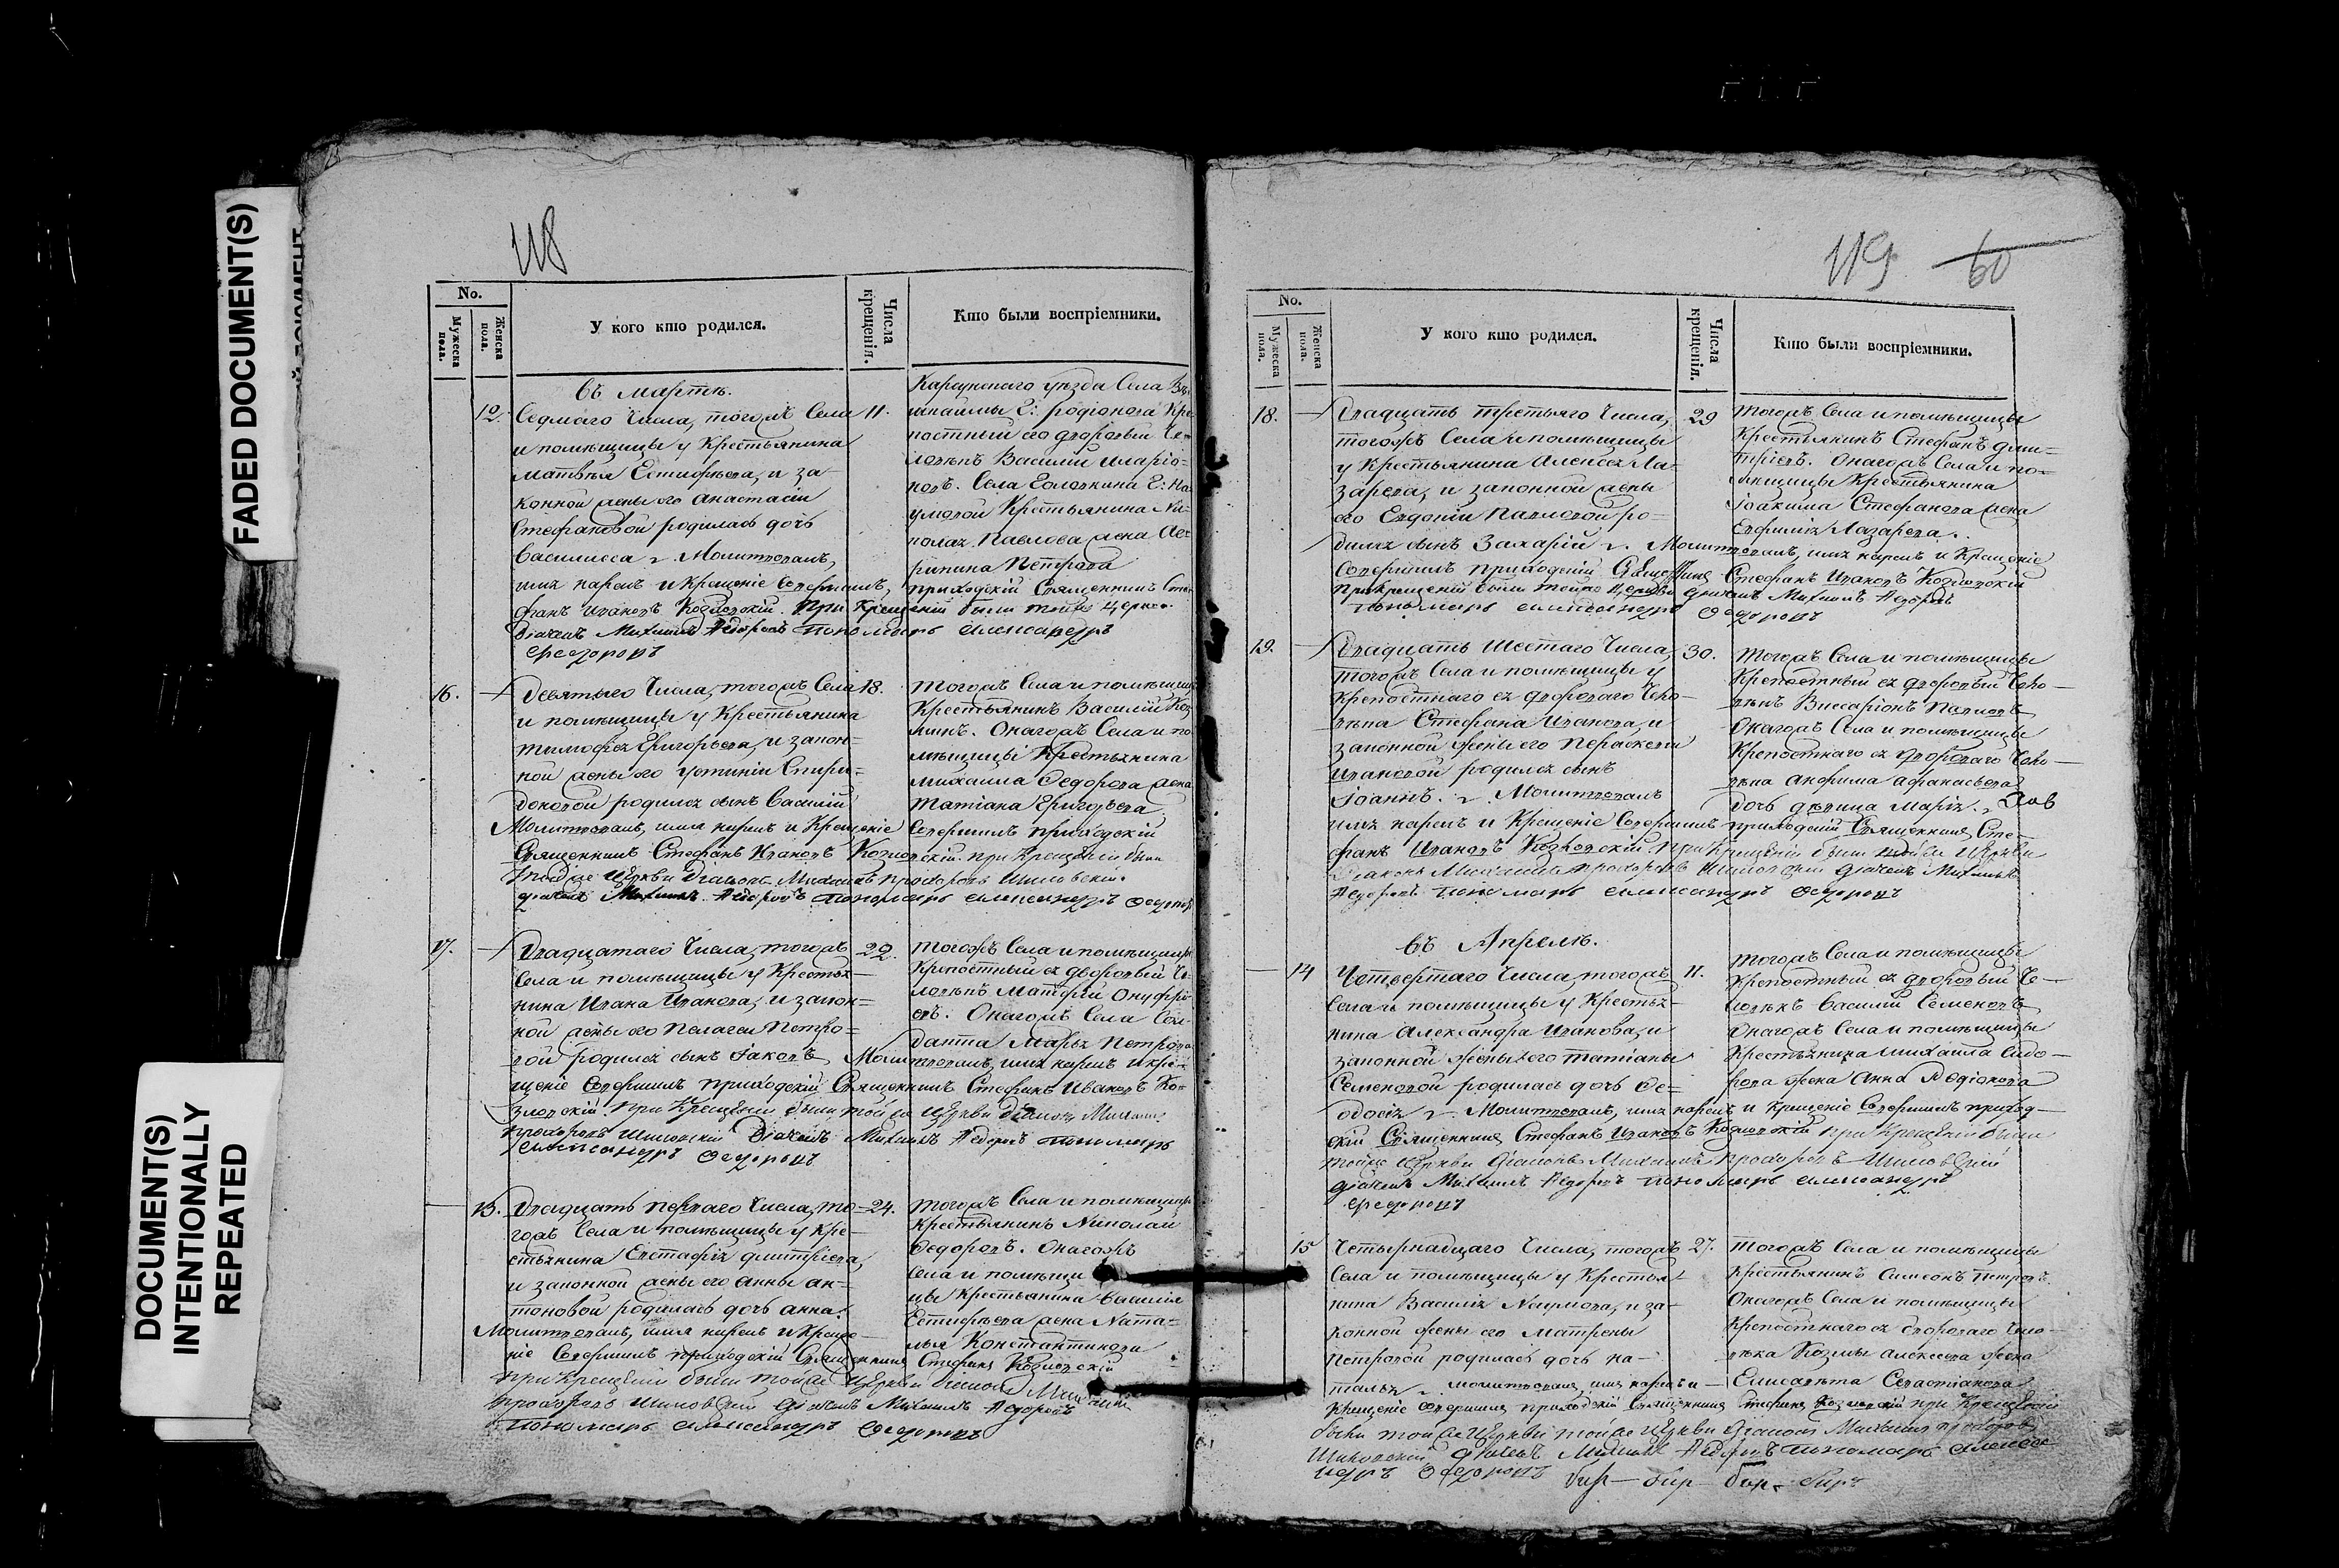 FADED DOCUMENT(S)
DOCUMENT(S)
INTENTIONALLY
REPEATED
118
No.
Мужеска пола.
Женска пола.
У кого кто родился.
Числа крещенія.
Кто были воспріемники.
въ Мартѣ.
12.
Седмаго Числа, тогожъ Села
и помѣщицы у Крестьянина
Матвѣя Естифѣева, и за-
конной жены его Анастасіи
Стефановой родилась дочь
Василисса. Молитвовалъ,
имя нарекъ и Крещеніе Совершилъ, приходскій Священникъ Сте-
фанъ Ивановъ Козловскій. При Крещеніи были тойже Церкви
Дьячекъ Михаилъ Ѳедоровъ Пономарь Александръ
Ѳедоровъ
11.
Карсунскаго уѣзда Села
Родіонова Кре-
постный его дворовый Че-
ловѣкъ Василій Иларіо-
новъ. Села Головкина Г: На-
умовой Крестьянина Ни-
колая Павлова жена
Петрова
16.
Девятаго Числа, тогожъ Села
и помѣщицы у Крестьянина
Тимофея Григорьева, и закон-
ной жены его Устиніи Спири-
доновой родился сынъ Василій
Молитвовалъ, имя нарекъ и Крещеніе Совершилъ приходскій
Священникъ Стефанъ Ивановъ Козловскій. при Крещеніи были
тойже Церкви Діаконъ Михаилъ Прохоровъ Шиловскій.
дьячекъ Михаилъ Ѳедоровъ пономарь Александръ Ѳедоровъ
18.
Тогожъ Села и помѣщицы
Крестьянинъ Василій Коз-
минъ. Онагожъ Села и по-
мѣщицы Крестьянина
Михаила Ѳедорова жена
Татіана Григорьева
17.
Двадцатаго Числа, тогожъ
Села и помѣщицы у Крестья-
нина Ивана Иванова, и закон-
ной жены его Пелагеи Петро-
вой родился сынъ Іаковъ Молитвовалъ, имя нарекъ и Кре-
щеніе Совершилъ приходскій Священникъ Стефанъ Ивановъ Ко-
зловскій. При Крещеніи были тойже Церкви Діаконъ Михаилъ
Прохоровъ Шиловскій Дьячекъ Михаилъ Ѳедоровъ пономарь
Александръ Ѳедоровъ
22.
Тогожъ Села и помѣщицы
Крепостный ея дворовый Че-
ловѣкъ Матфій Онуфрі-
евъ. Онагожъ Села Сол-
датка Марья Петрова
13.
Двадцать перваго Числа, то-
гожъ Села и помѣщицы у Кре-
стьянина Евстафія Дмитріева,
и законной жены его Анны Ан-
тоновой родилась дочь Анна.
Молитвовалъ, имя нарекъ и Креще-
ніе Совершилъ приходскій Священникъ Стефанъ Козловскій
при Крещеніи были тойже Церкви Діаконъ Михаилъ
Прохоровъ Шиловскій дьячекъ Михаилъ Ѳедоровъ
Пономарь Александръ Ѳедоровъ
24.
Тогожъ Села и помѣщицы
Крестьянинъ Николай
Ѳедоровъ. Онагожъ
Села и помѣщи
цы Крестьянина Василія
Естифѣева жена Ната-
лья Константинова
119 60
No.
Мужеска пола.
Женска пола.
У кого кто родился.
Числа крещенія.
Кто были воспріемники.
18.
Двадцать третьяго Числа,
тогожъ Села и помѣщицы
у Крестьянина Алексея Ла-
зарева, и законной жены
его Евдокіи Павловой ро-
дился сынъ Захарій. Молитвовалъ, имя нарекъ и Крещеніе
Совершилъ приходскій Священникъ Стефанъ Ивановъ Козловскій
при крещеніи были тойже Церкви дьячекъ Михаилъ Ѳедоровъ
Пономарь Александръ Ѳедоровъ
29
Тогожъ Села и помѣщицы
Крестьянинъ Стефанъ Дми-
тріевъ. Онагожъ Села и по-
мѣщицы Крестьянина
Іоакима Стефанова жена
Евфимія Лазарева.
19.
Двадцать Шестаго Числа,
тогожъ Села и помѣщицы у
Крепостнаго ея двороваго Чело-
вѣка Стефана Иванова и
законной жены его Параскевы
Ивановой родился сынъ
Іоаннъ. Молитвовалъ
имя нарекъ и Крещеніе Совершилъ приходскій Священникъ Сте-
фанъ Ивановъ Козловскій При Крещеніи были тойже Церкви
Діаконъ Михаилъ Прохоровъ Шиловскій дьячекъ Михаилъ
Ѳедоровъ Пономарь Александръ Ѳедоровъ
30.
Тогожъ Села и помѣщицы
Крепостный ея дворовый Чело-
вѣкъ Виссаріонъ Павловъ
Онагожъ Села и помѣщицы
Крепостнаго ея двороваго Чело-
вѣка Анфима Афанасьева
дочь дѣвица Марія.
въ Апрелѣ.
14
Четвертаго Числа, тогожъ
Села и помѣщицы у Крестья-
нина Александра Иванова, и
законной жены его Татіаны
Семеновой родилась дочь Ѳе-
одосія. Молитвовалъ, имя нарекъ и Крещеніе Совершилъ приход-
скій Священникъ Стефанъ Ивановъ Козловскій при Крещеніи были
тойже Церкви Діаконъ Михаилъ Прохоровъ Шиловскій
дьячекъ Михаилъ Ѳедоровъ пономарь Александръ
Ѳедоровъ
11.
Тогожъ Села и помѣщицы
Крепостный ея дворовый Че-
ловѣкъ Василій Семеновъ
Онагожъ Села и помѣщицы
Крестьянина Михаила Сидо-
рова жена Анна Родіонова
15
Четырнадцаго Числа, тогожъ
Села и помѣщицы у Крестья-
нина Василія Наумова, и за-
конной жены его Матрены
Петровой родилась дочь На-
талья. молитвовалъ, имя нарекъ и
Крещеніе совершилъ приходскій Священникъ Стефанъ Козловскій при Крещеніи
были тойже Церкви тойже Церкви Діаконъ Михаилъ Прохоровъ
Шиловскій дьячекъ Михаилъ Ѳедоровъ пономарь Алекса
ндръ Ѳедоровъ
27.
Тогожъ Села и помѣщицы
Крестьянинъ Симеонъ Петровъ.
Онагожъ Села и помѣщицы
Крепостнаго ея двороваго Чело-
вѣка Козмы Алексеева жена
Елисавета Севастіанова